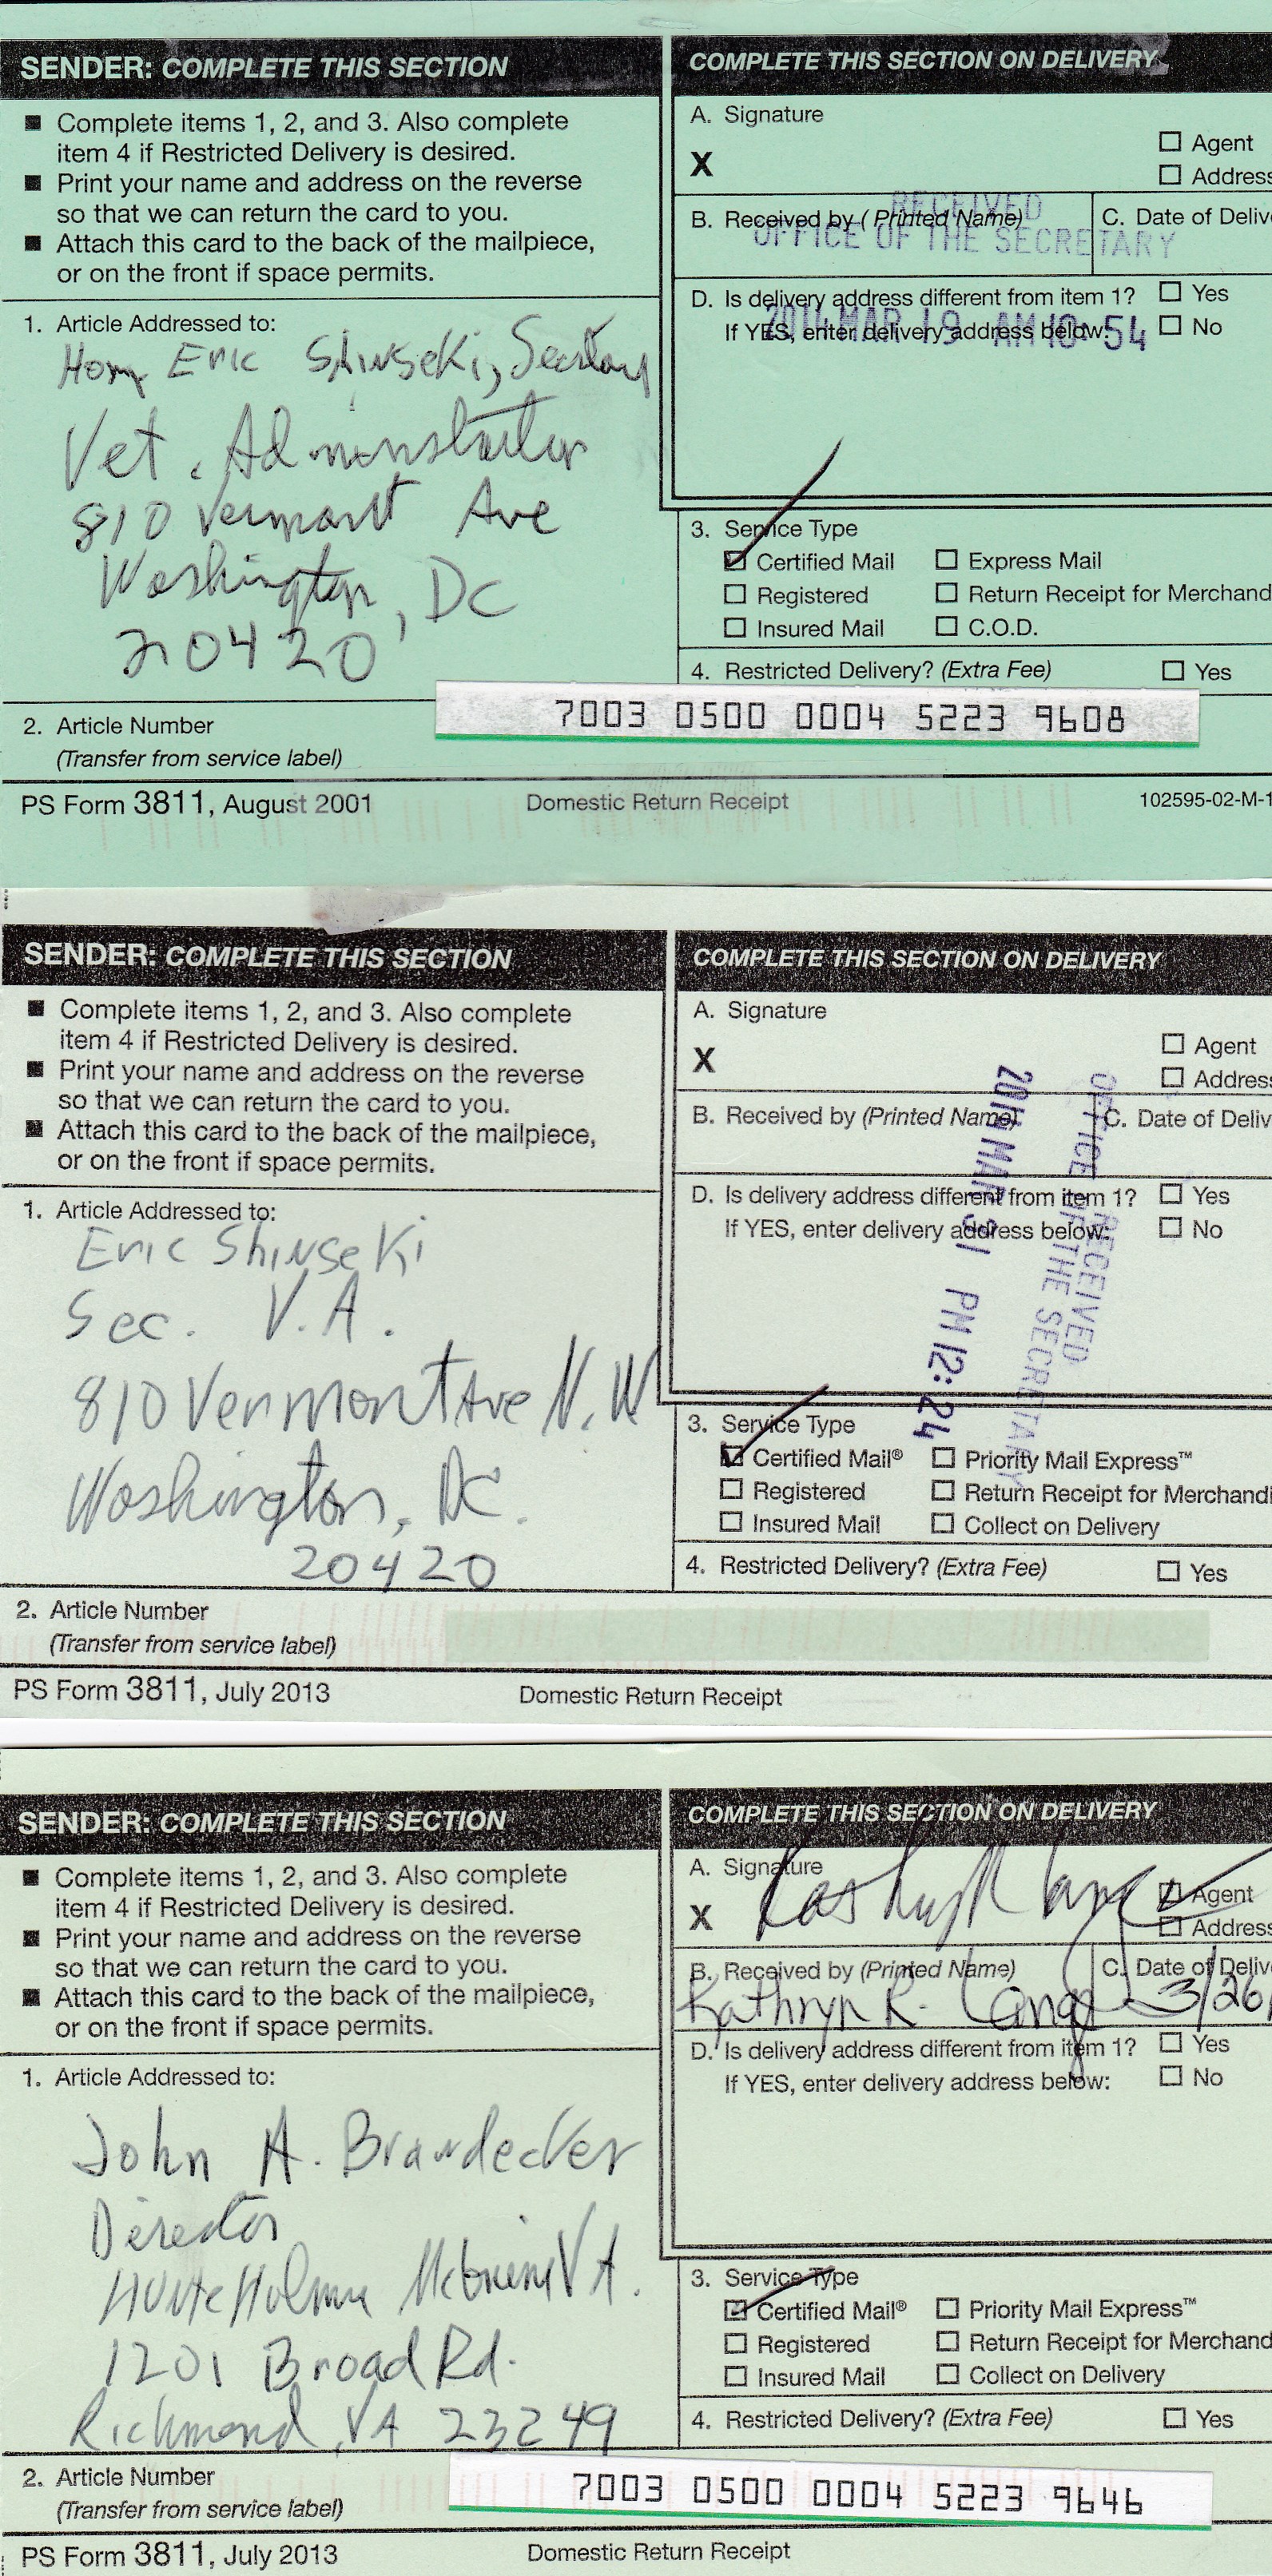 SENDER: COMPLETE THIS SECTION
■ Complete items 1, 2, and 3. Also complete
item 4 if Restricted Delivery is desired.
■ Print your name and address on the reverse
so that we can return the card to you.
■ Attach this card to the back of the mailpiece,
or on the front if space permits.
1. Article Addressed to:
Hon Eric Shinseki, Secretary
Vet. Administration
810 Vermont Ave
Washington, DC
20420
2. Article Number
(Transfer from service label)
7003 0500 0004 5223 9608
PS Form 3811, August 2001
Domestic Return Receipt
102595-02-M-1
COMPLETE THIS SECTION ON DELIVERY
A. Signature
X
☐ Agent
☐ Address
B. Received by ( Printed Name)
C. Date of Delive
RECEIVED
OFFICE OF THE SECRETARY
D. Is delivery address different from item 1? ☐ Yes
If YES, enter delivery address below: ☐ No
2014 MAR 19 AM 10:54
3. Service Type
☑ Certified Mail ☐ Express Mail
☐ Registered ☐ Return Receipt for Merchand
☐ Insured Mail ☐ C.O.D.
4. Restricted Delivery? (Extra Fee) ☐ Yes
SENDER: COMPLETE THIS SECTION
■ Complete items 1, 2, and 3. Also complete
item 4 if Restricted Delivery is desired.
■ Print your name and address on the reverse
so that we can return the card to you.
■ Attach this card to the back of the mailpiece,
or on the front if space permits.
1. Article Addressed to:
Eric Shinseki
Sec. V.A.
810 Vermont Ave N.W
Washington, DC.
20420
2. Article Number
(Transfer from service label)
PS Form 3811, July 2013
Domestic Return Receipt
COMPLETE THIS SECTION ON DELIVERY
A. Signature
X
☐ Agent
☐ Address
B. Received by (Printed Name)
C. Date of Deliv
D. Is delivery address different from item 1? ☐ Yes
If YES, enter delivery address below: ☐ No
RECEIVED
OFFICE OF THE SECRETARY
2014 MAR 31 PM 12:24
3. Service Type
☑ Certified Mail® ☐ Priority Mail Express™
☐ Registered ☐ Return Receipt for Merchandi
☐ Insured Mail ☐ Collect on Delivery
4. Restricted Delivery? (Extra Fee) ☐ Yes
SENDER: COMPLETE THIS SECTION
■ Complete items 1, 2, and 3. Also complete
item 4 if Restricted Delivery is desired.
■ Print your name and address on the reverse
so that we can return the card to you.
■ Attach this card to the back of the mailpiece,
or on the front if space permits.
1. Article Addressed to:
John A. Brandecker
Director
V A.
1201 Broad Rd.
Richmond, VA 23249
2. Article Number
(Transfer from service label)
7003 0500 0004 5223 9646
PS Form 3811, July 2013
Domestic Return Receipt
COMPLETE THIS SECTION ON DELIVERY
A. Signature
X
☐ Agent
☐ Address
B. Received by (Printed Name)
C. Date of Delive
Kathryn R. Lang 3/26/
D. Is delivery address different from item 1? ☐ Yes
If YES, enter delivery address below: ☐ No
3. Service Type
☑ Certified Mail® ☐ Priority Mail Express™
☐ Registered ☐ Return Receipt for Merchand
☐ Insured Mail ☐ Collect on Delivery
4. Restricted Delivery? (Extra Fee) ☐ Yes